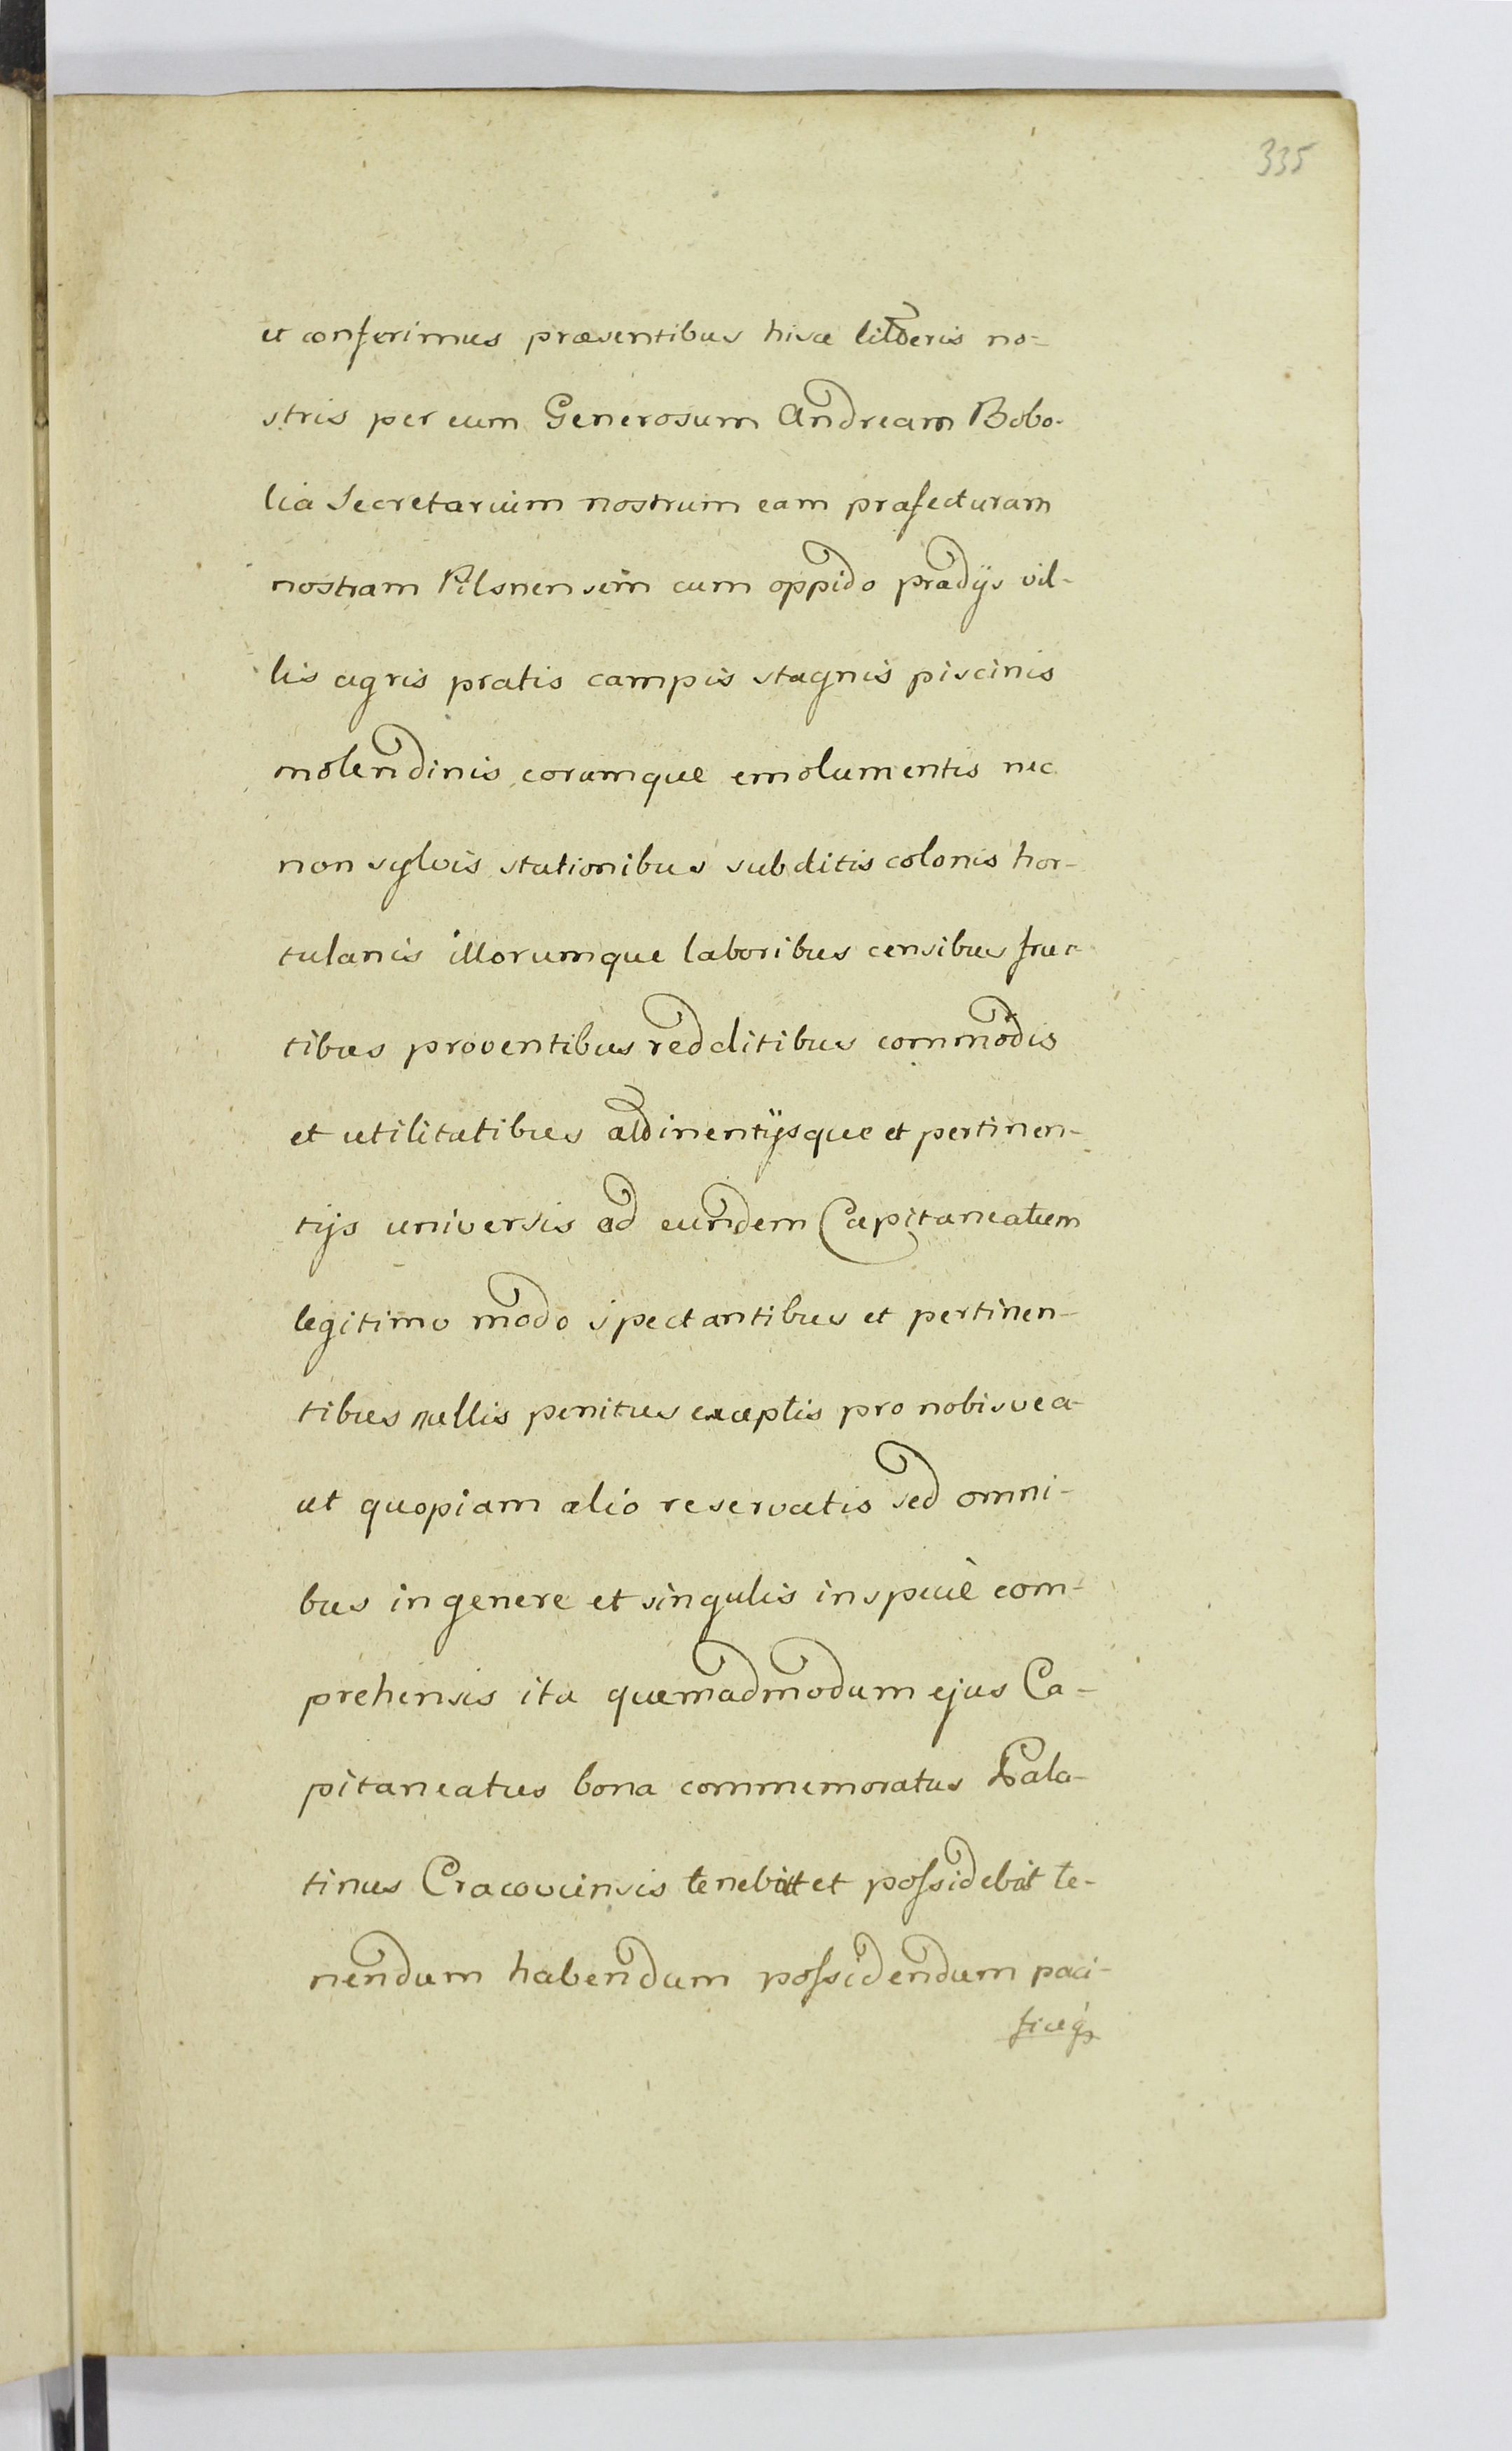 335
et conferimus præsentibus hisce litteris no=
stris per eum Generosum Andream Bobo-
lia Secretarium nostrum eam præfecturam
nostram Pilsnensem cum oppido prædijs vil-
lis agris pratis campis stagnis piscinis
molendinis eorumque emolumentis nec
non sylvis stationibus subditis colonis hor-
tulanis illorumque laboribus censibus fruc-
tibus proventibus redditibus commodis
et utilitatibus attinentijsque et pertinen-
tijs universis ad eundem Capitaneatum
legitimo modo spectantibus et pertinen-
tibus nullis penitus exceptis pro nobis vea-
ut quopiam alio reservatis sed omni-
bus in genere et singulis in specie com-
prehensis ita quemadmodum ejus Ca-
pitaneatus bona commemoratus Pala-
tinus Cracoviensis tenebat et possidebat te-
nendum habendum possidendum paci-
ficeq